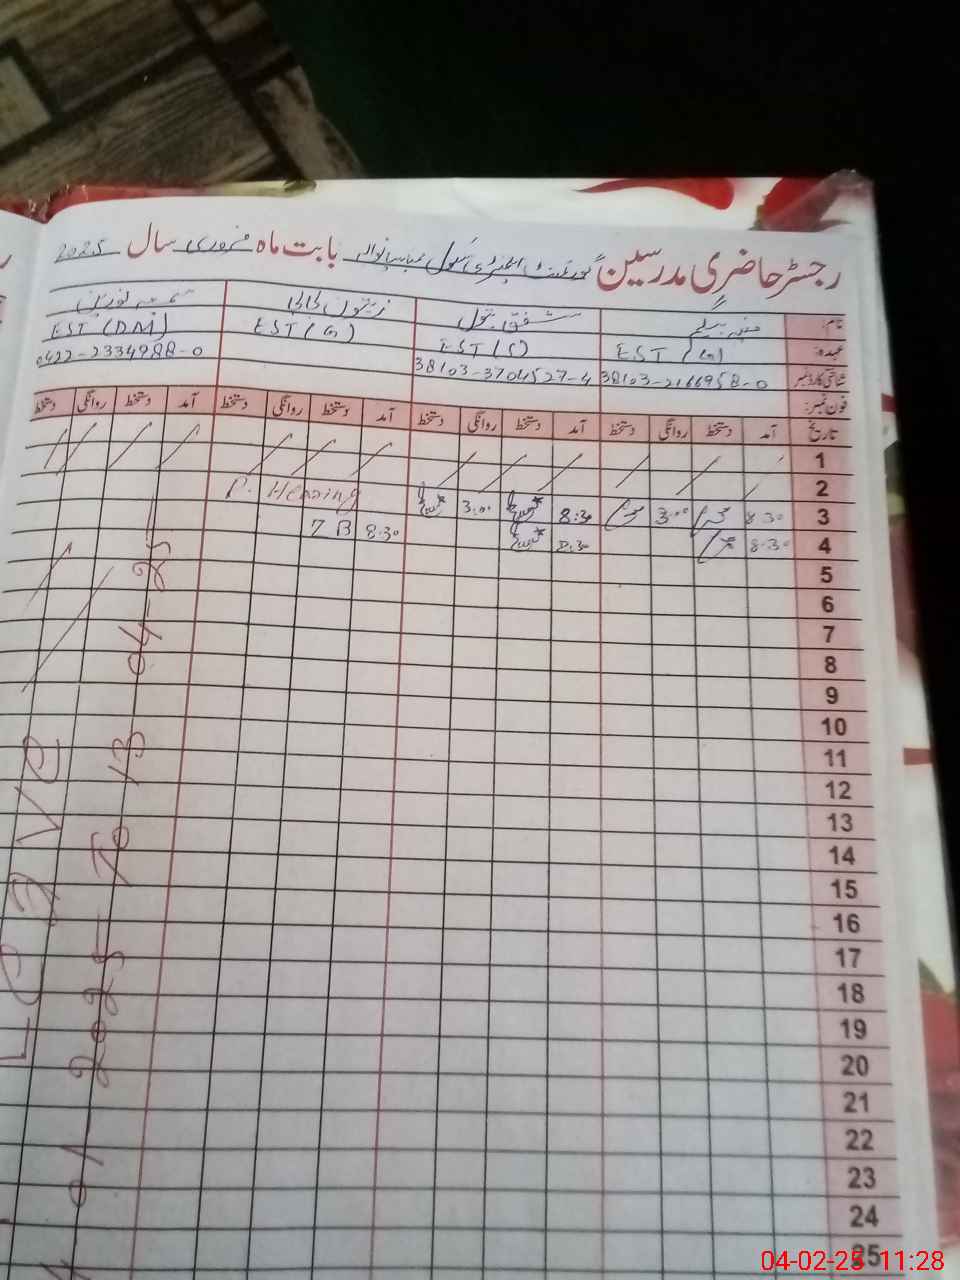 رجسٹر حاضری مدرسین گورنمنٹ ایلیمنٹری سکول بابت ماہ فروری سال 2025
نام: شفق بتول زیتون بی بی
عہدہ: EST (G) EST (S) EST (G) EST (DM)
شناختی کارڈ نمبر 38103-2166958-0 38103-3704527-4 0422-2334988-0
فون نمبر:
تاریخ آمد دستخط روانگی دستخط آمد دستخط روانگی دستخط آمد دستخط روانگی دستخط آمد دستخط روانگی دستخط
1
2
3 8:30 3:00 8:30 3:00 P. Hearing
4 8:30 8:30 8:30 Z B
5
6
7
8
9
10
11
12
13
14
15
16
17
18
19
20
21
22
23
24
25
01-2025 To 13-04-25
Leave
04-02-25 11:28